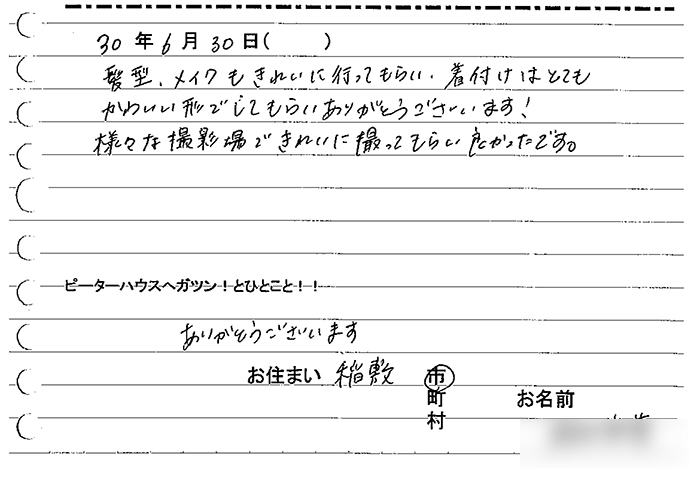 30年6月30日( )
髪型、メイクもきれいに行ってもらい、着付けはとても
かわいい形でしてもらいありがとうございます!
様々な撮影場できれいに撮ってもらい良かったです。
ピーターハウスへガツン!とひとこと!!
ありがとうございます
お住まい 稲敷 市
町
村
お名前